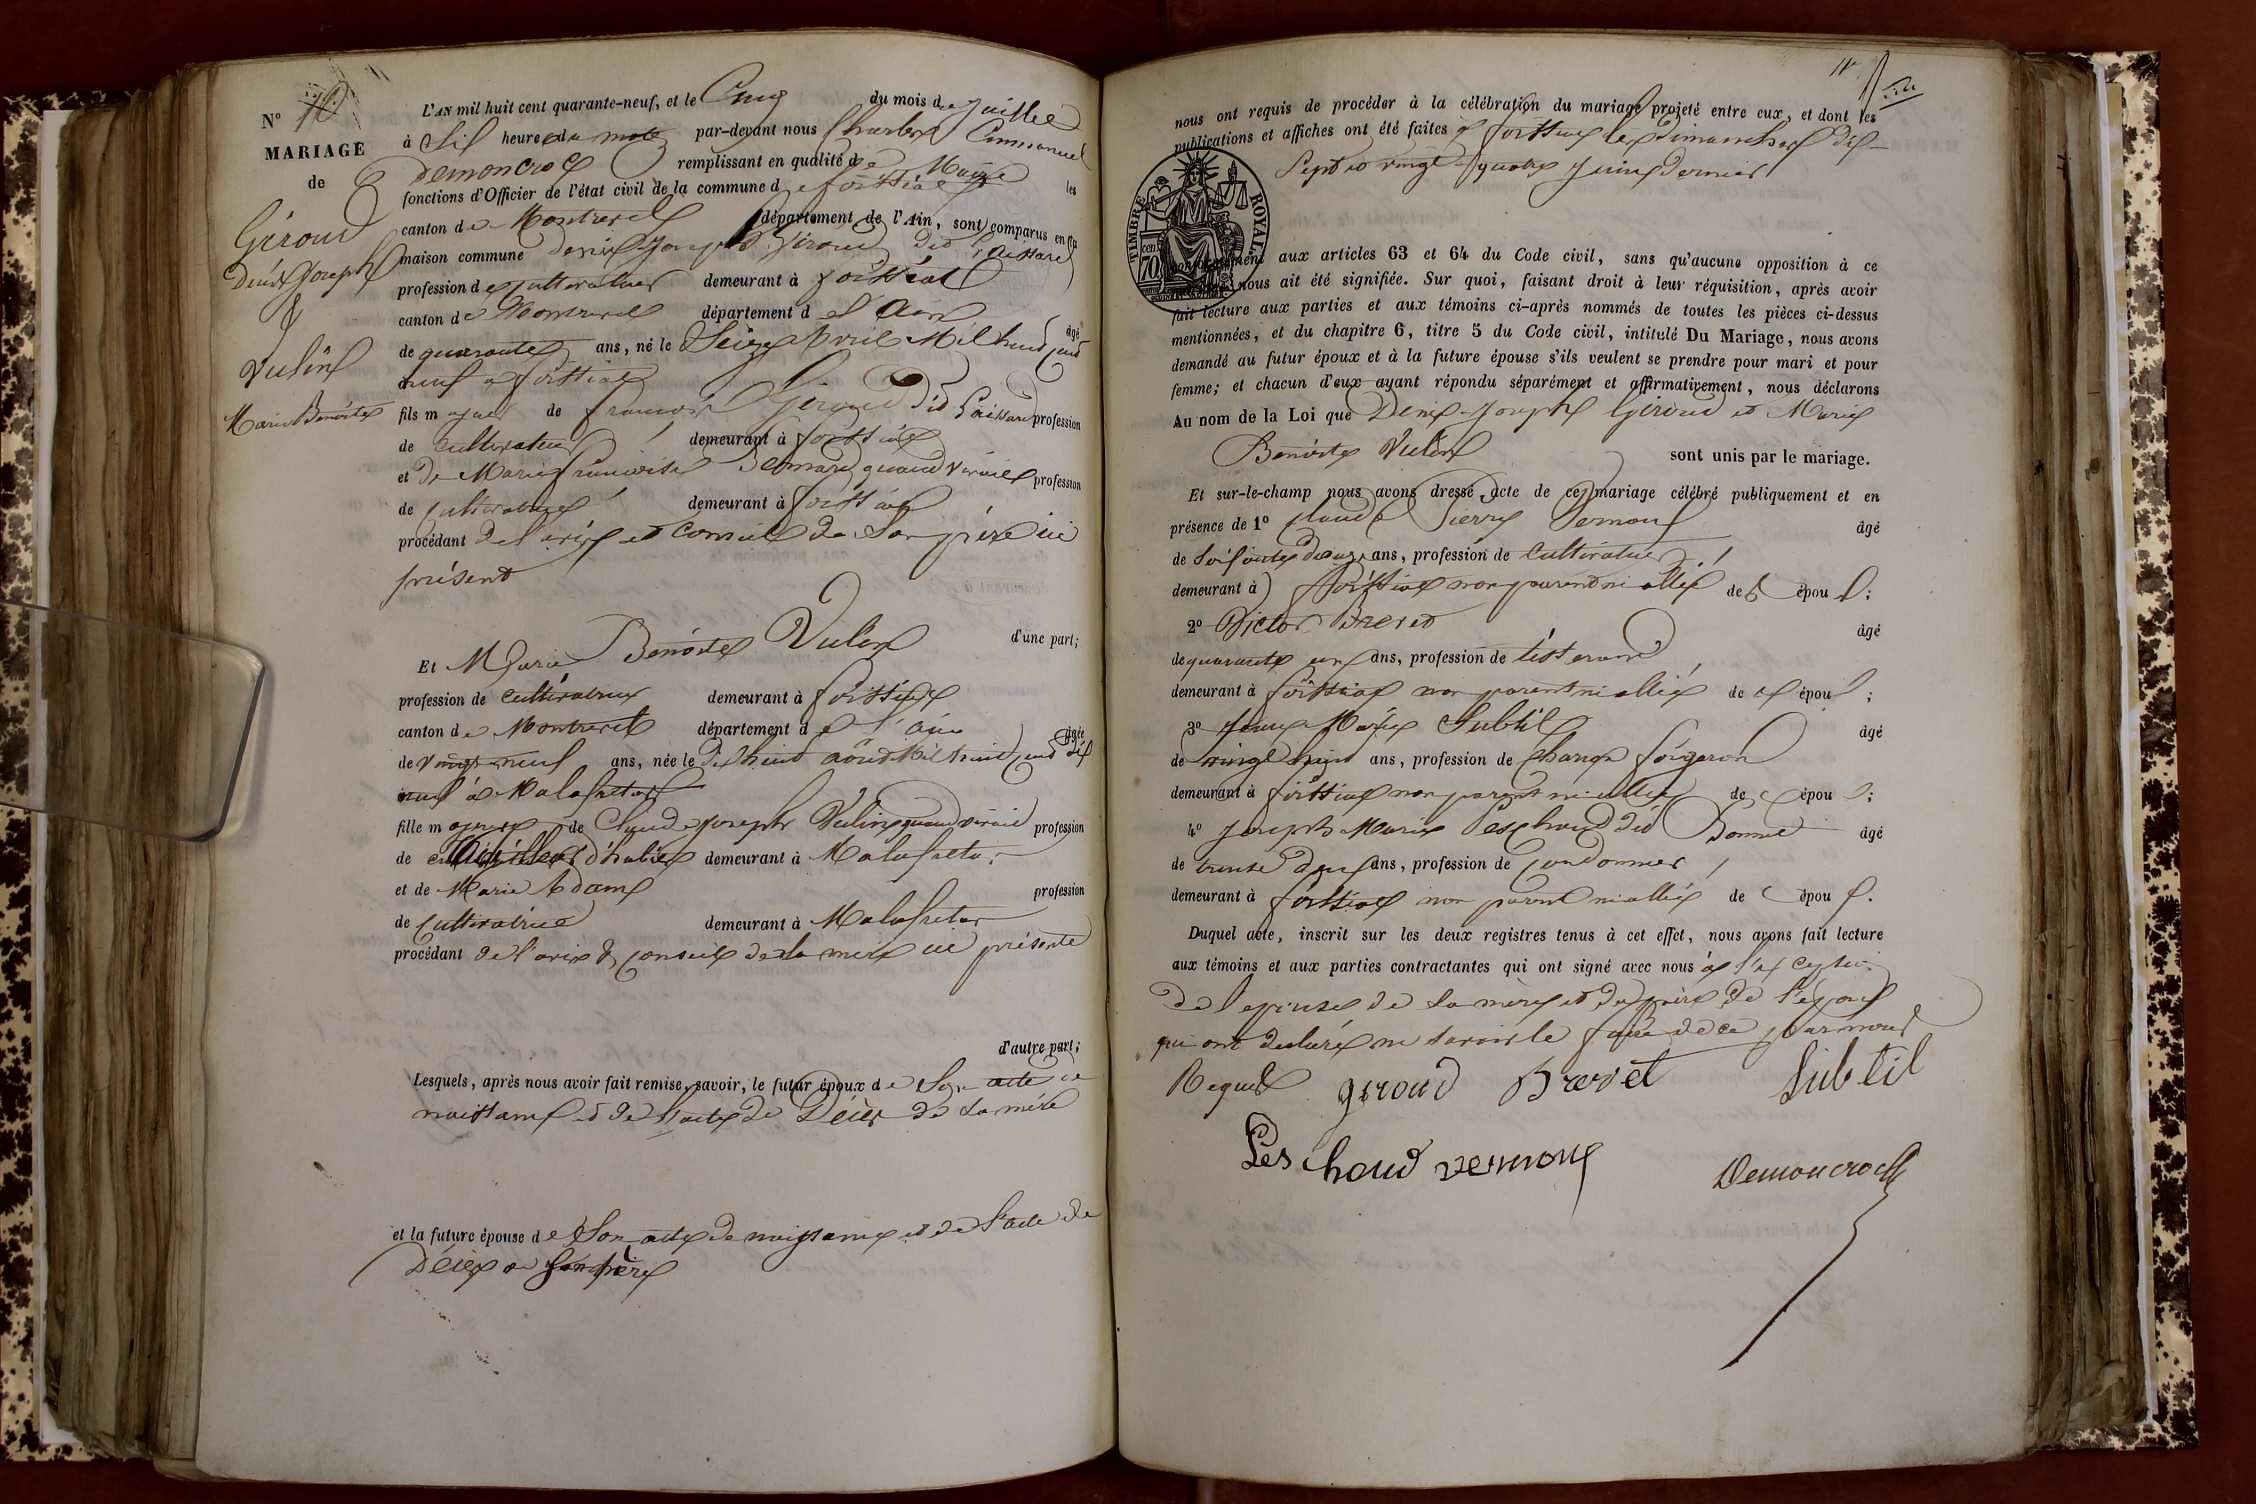 N° 10
MARIAGE
de
Giroud
Denis Joseph
&
Vulin
Marie Benoite
L'AN mil huit cent quarante-neuf, et le Cinq du mois de Juillet
à Six heures du par-devant nous Charles Emmanuel
Demoncroc remplissant en qualité de Maire les
fonctions d'Officier de l'état civil de la commune de foissiat
canton de Montrevel département de l'Ain, sont comparus en la
maison commune Denis Joseph Giroud dit
profession de cultivateur demeurant à foissiat
canton de Montrevel département de l'Ain âgé
de quarante ans, né le Seize Avril Mil huit cent
neuf à foissiat
fils majeur de françois Giroud dit profession
de cultivateur demeurant à foissiat
et de Marie françoise quand vivait profession
de cultivatrice demeurant à foissiat
procédant de l'avis et conseil de Son père ici
présent
d'une part;
Et Marie Benoite Vulin
profession de cultivatrice demeurant à foissiat
canton de Montrevel département de l'Ain âgée
de vingt neuf ans, née le dix huit août Mil huit cent dix
neuf à Malafretaz
fille majeure de Claude Joseph Vulin quand vivait profession
de demeurant à Malafretaz
et de Marie Adam profession
de Cultivatrice demeurant à Malafretaz
procédant de l'avis & conseil de sa mère ici présente
d'autre part;
Lesquels, après nous avoir fait remise, savoir, le futur époux de Son acte de
naissance et de l'acte de Décès de sa mère
et la future épouse de Son acte de naissance et de l'acte de
Décès de son père
11
nous ont requis de procéder à la célébration du mariage projeté entre eux, et dont les
publications et affiches ont été faites à foissiat les Dimanches dix
Sept et vingt quatre Juin dernier
TIMBRE ROYAL
70 cen
conformément aux articles 63 et 64 du Code civil, sans qu'aucune opposition à ce
nous ait été signifiée. Sur quoi, faisant droit à leur réquisition, après avoir
fait lecture aux parties et aux témoins ci-après nommés de toutes les pièces ci-dessus
mentionnées, et du chapitre 6, titre 5 du Code civil, intitulé Du Mariage, nous avons
demandé au futur époux et à la future épouse s'ils veulent se prendre pour mari et pour
femme; et chacun d'eux ayant répondu séparément et affirmativement, nous déclarons
Au nom de la Loi que Denis Joseph Giroud et Marie
Benoite Vulin sont unis par le mariage.
Et sur-le-champ nous avons dressé acte de ce mariage célébré publiquement et en
présence de 1° Claude Pierre Vernoux âgé
de Soixante douze ans, profession de cultivateur
demeurant à foissiat non parent ni allié des époux;
2° Victor Brevet âgé
de quarante un ans, profession de tisserand
demeurant à foissiat non parent ni allié des époux;
3° Jean Marie Subtil âgé
de vingt huit ans, profession de Charron forgeron
demeurant à foissiat non parent ni allié des époux;
4° Joseph Marie Peschoud dit âgé
de trente deux ans, profession de cordonnier
demeurant à foissiat non parent ni allié des époux.
Duquel acte, inscrit sur les deux registres tenus à cet effet, nous avons fait lecture
aux témoins et aux parties contractantes qui ont signé avec nous à l'exception
de l'épouse de sa mère et du père de l'époux
qui ont déclaré ne savoir le faire de ce
Requis giroud Brevet Subtil
Peschoud vernoux Demoncroc